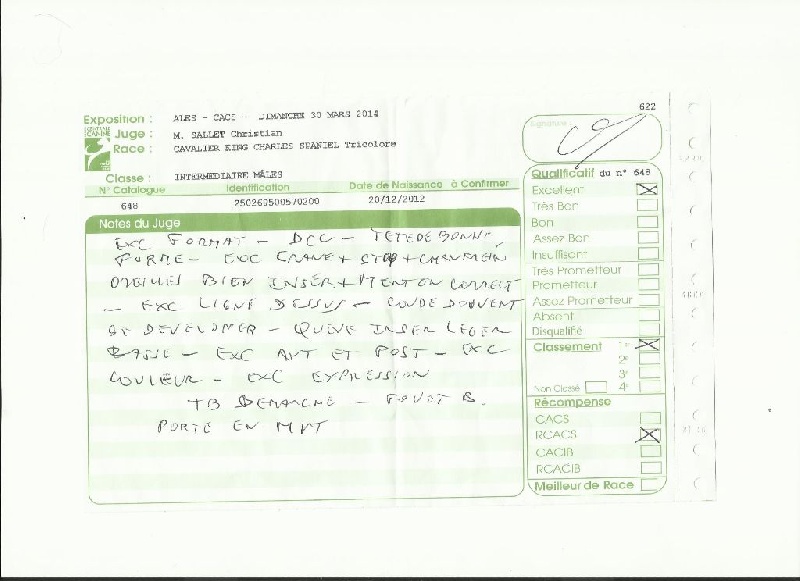 622
Exposition : ALES - CACS - DIMANCHE 30 MARS 2014
CENTRALE CANINE
Juge : M. SALLET Christian
Race : CAVALIER KING CHARLES SPANIEL Tricolore
Classe : INTERMEDIAIRE MÂLES
N° Catalogue Identification Date de Naissance à Confirmer
648 250269500570200 20/12/2012
Signature :
Notes du Juge
EXC FORMAT - DCC - TETE DE BONNE
FORME - EXC CRANE + STOP + CHANFREIN
OREILLES BIEN INSER + MENTON CORRECT
- EXC LIGNE DESSUS - COUDE DOUVENT
SE DEVELOPER - QUEUE INSER LEGER
BASSE - EXC AVT ET POST - EXC
COULEUR - EXC EXPRESSION
TB DEMARCHE - FOUET B.
PORTE EN MVT
Qualificatif du n° 648
Excellent
Très Bon
Bon
Assez Bon
Insuffisant
Très Prometteur
Prometteur
Assez Prometteur
Absent
Disqualifié
Classement 1er
2e
3e
Non Classé 4e
Récompense
CACS
RCACS
CACIB
RCACIB
Meilleur de Race